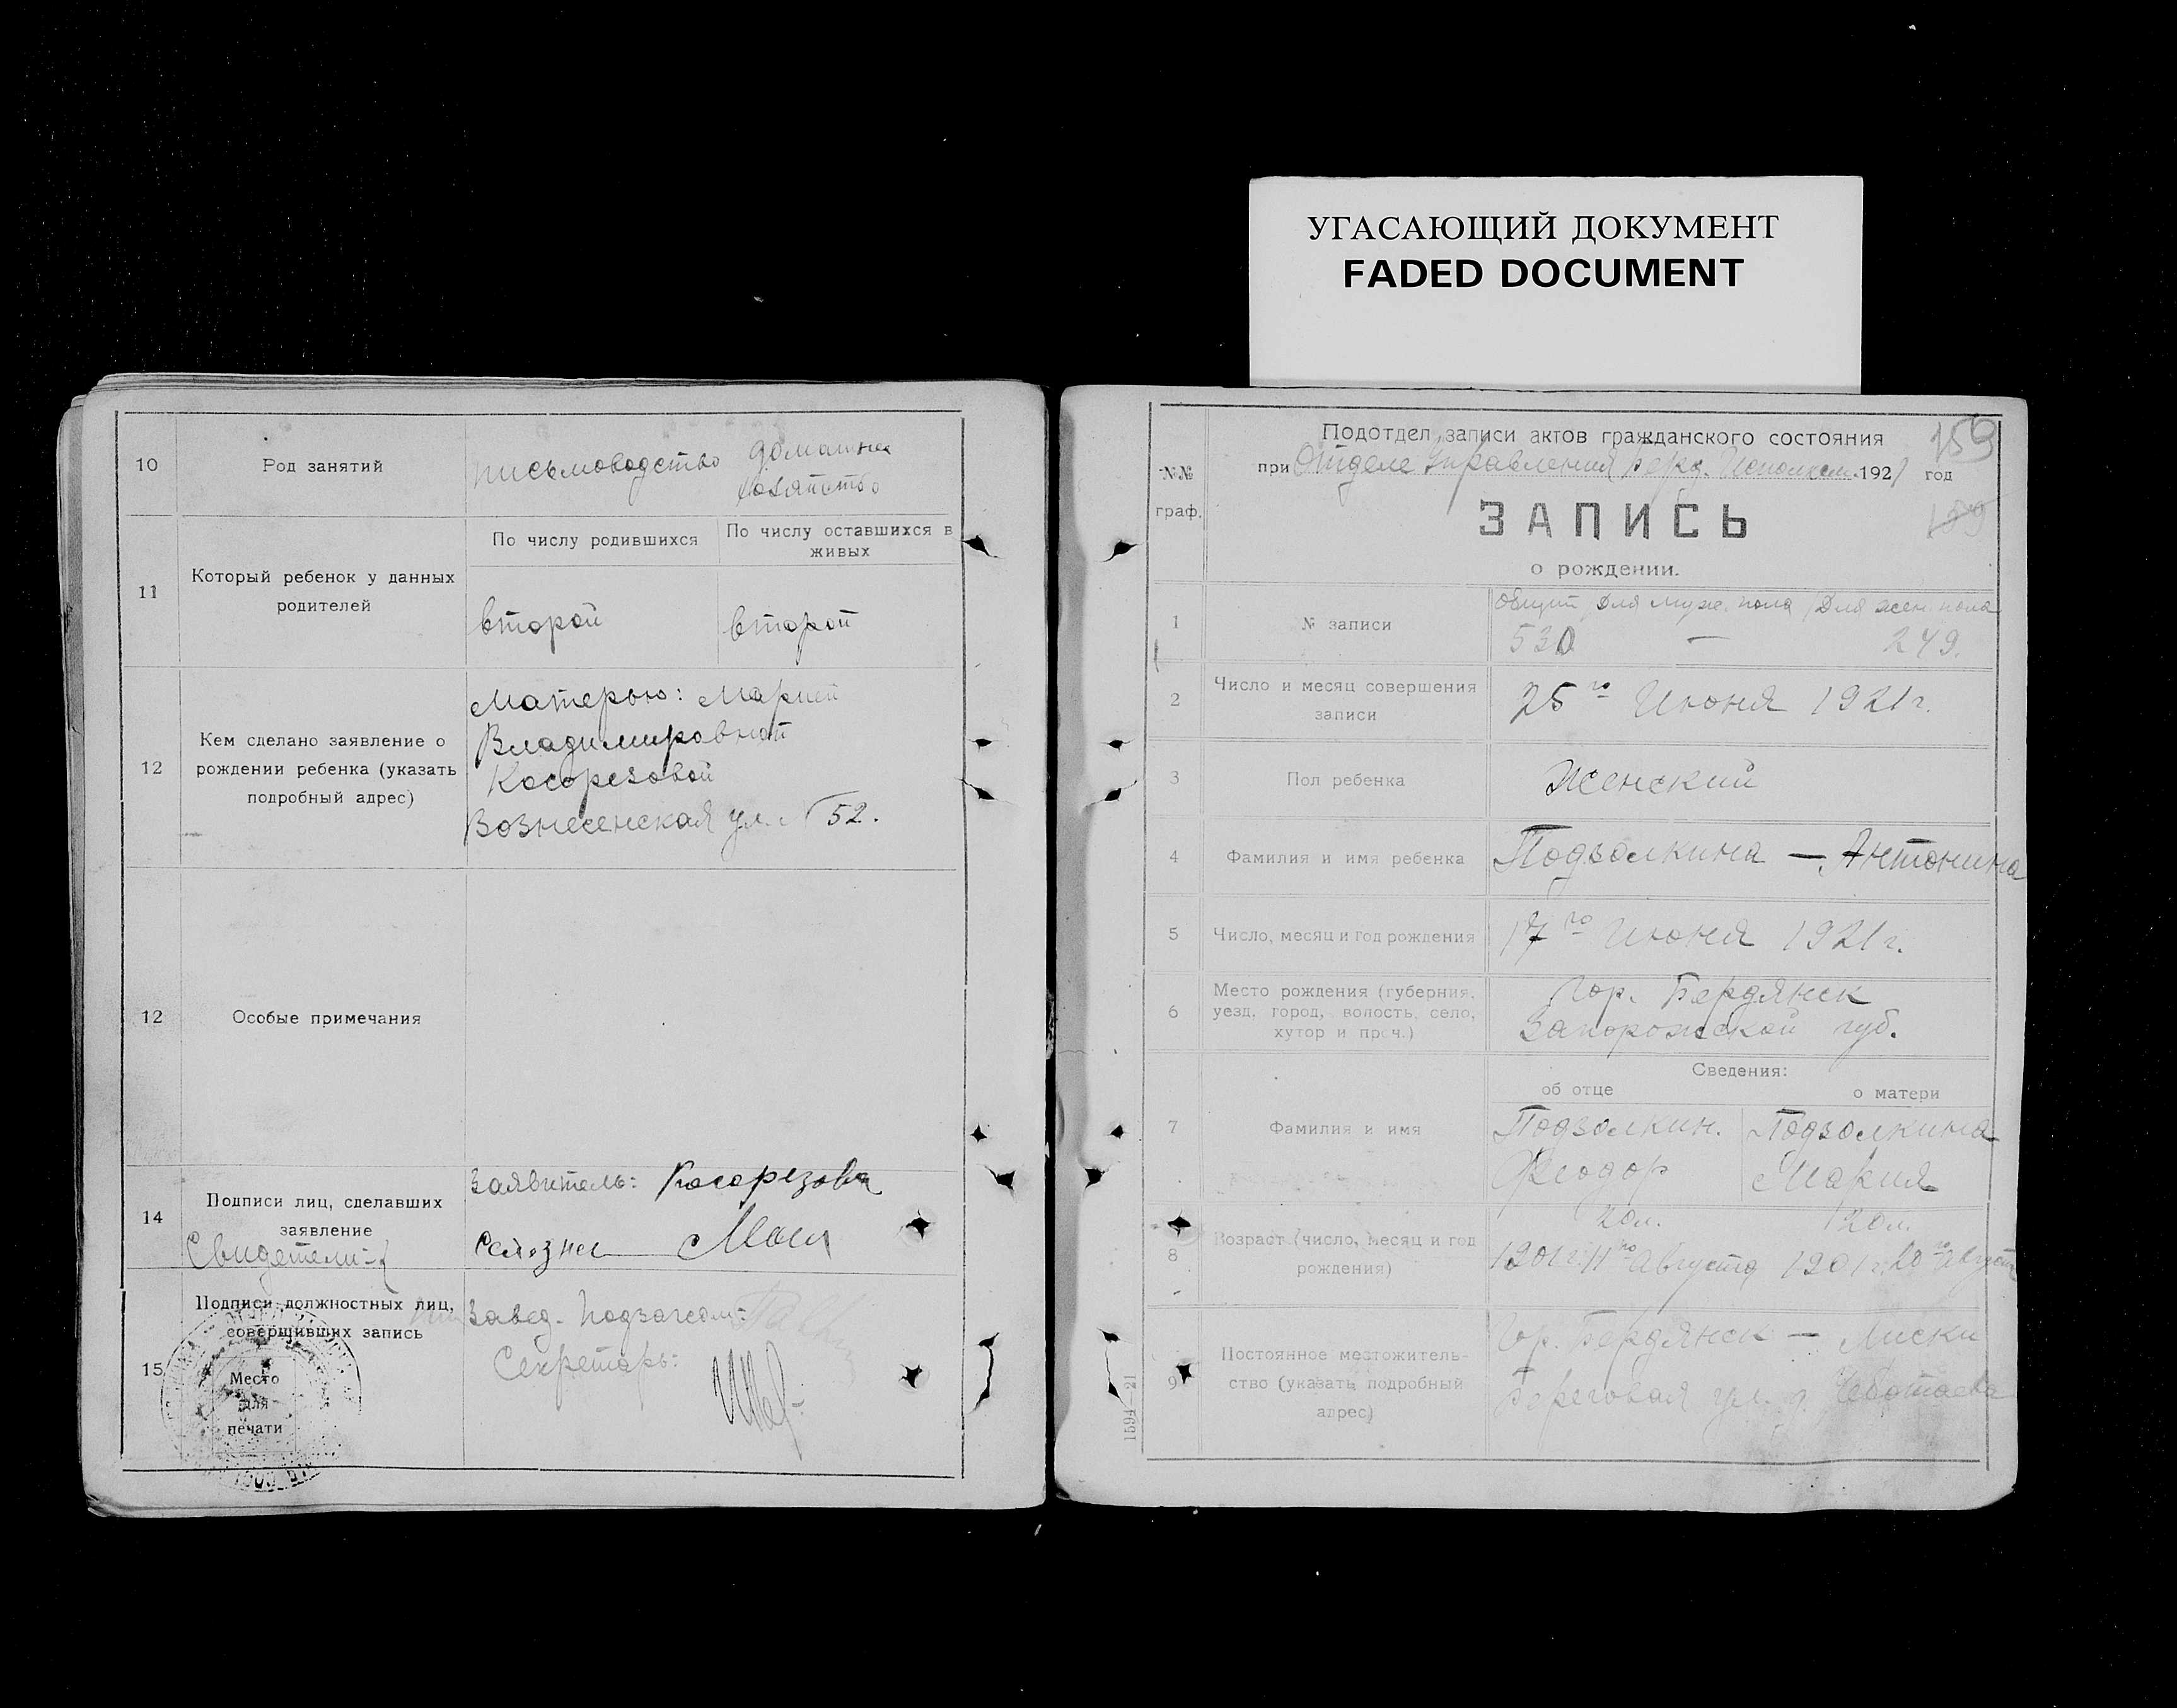 УГАСАЮЩИЙ ДОКУМЕНТ
FADED DOCUMENT
10
Род занятий
письмоводство
домашнее
хозяйство
11
Который ребенок у данных
родителей
По числу родившихся
По числу оставшихся в
живых
второй
второй
12
Кем сделано заявление о
рождении ребенка (указать
подробный адрес)
Матерью: Марией
Владимировной
Косорезовой
Вознесенская ул. 52.
12
Особые примечания
14
Подписи лиц, сделавших
заявление
Свидетели
Заявитель: Косорезова
15
Подписи должностных лиц,
совершивших запись
Место
для
печати
Завед. Подзагсом:
Секретарь:
№№
граф.
Подотдел записи актов гражданского состояния
при Отделе Управления Берд. Исполком. 1921 год
159
159
ЗАПИСЬ
о рождении.
1
№ записи
Общий Для муж. пола Для жен. пола
530 — 249.
2
Число и месяц совершения
записи
25го Июня 1921 г.
3
Пол ребенка
Женский
4
Фамилия и имя ребенка
Подзолкина — Антонина
5
Число, месяц и год рождения
17го Июня 1921 г.
6
Место рождения (губерния,
уезд, город, волость, село,
хутор и проч.)
Гор. Бердянск
Запорожской губ.
Сведения:
об отце
о матери
7
Фамилия и имя
Подзолкин.
Феодор
Подзолкина
Мария
8
Возраст (число, месяц и год
рождения)
20 л.
1901 г. 11го Августа
20 л.
1901 г. 20го Августа
9
Постоянное местожитель-
ство (указать подробный
адрес)
Гор. Бердянск — Лиски
Береговая ул. д.
1594—21